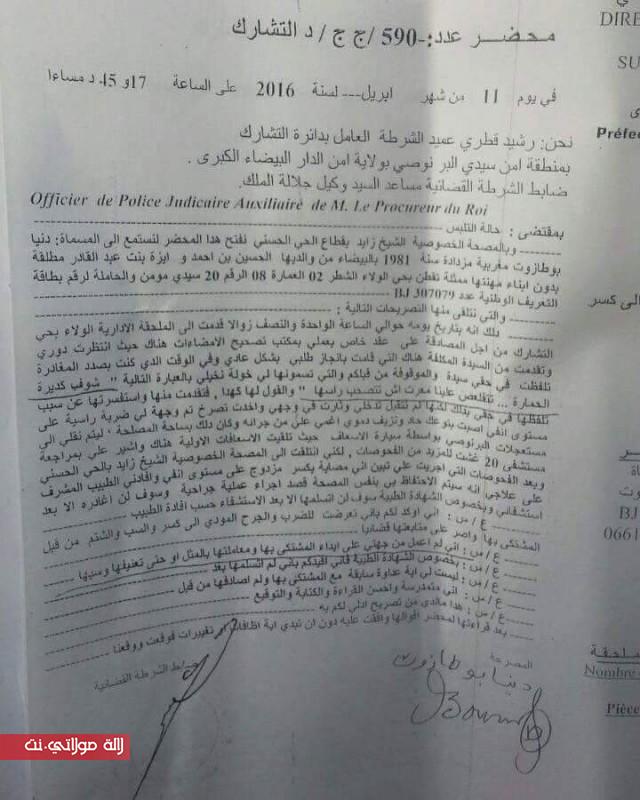 محضر عدد:-590 /ج ج / د التشارك
في يوم 11 من شهر ابريل---لسنة 2016 على الساعة 17و 45 د مساءا
نحن: رشيد قطري عميد الشرطة العامل بدائرة التشارك
بمنطقة امن سيدي البرنوصي بولاية امن الدار البيضاء الكبرى .
ضابط الشرطة القضائية مساعد السيد وكيل جلالة الملك.
Officier de Police Judicaire Auxiliaire de M. Le Procureur du Roi
بمقتضى : حالة التلبس
وبالمصحة الخصوصية الشيخ زايد بقطاع الحي الحسني نفتح هذا المحضر لنستمع الى المسماة: دنيا
بوطازوت مغربية مزدادة سنة 1981 بالبيضاء من والديها الحسين بن احمد و ايزة بنت عبد القادر مطلقة
بدون ابناء مهنتها ممثلة تقطن بحي الولاء الشطر 02 العمارة 08 الرقم 20 سيدي مومن والحاملة لرقم بطاقة
التعريف الوطنية عدد BJ 307079
والتي نتلقى منها التصريحات التالية :
ذلك انه بتاريخ يومه حوالي الساعة الواحدة والنصف زوالا قدمت الى الملحقة الادارية الولاء بحي
التشارك من اجل المصادقة على عقد خاص بعملي بمكتب تصحيح الامضاءات هناك حيث انتظرت دوري
وتقدمت من السيدة المكلفة هناك التي قامت بانجاز طلبي بشكل عادي وفي الوقت الذي كنت بصدد المغادرة
تلفظت في حقي سيدة والموقوفة من قبلكم والتي تسمونها لي خولة بالعبارة التالية " شوفي كديرة
الحمارة ... تتفلعص علينا معرت اش تتصحب راسها " والقول لها كهدا , فتقدمت منها واستفسرتها عن سبب
تلفظها في حقي بذلك لكنها لم تتقبل تدخلي وثارت في وجهي واخدت تصرخ تم وجهة لي ضربة راسية على
مستوى انفي اصبت بدوعك حاد ونزيف دموي اغمي علي من جرائه وكان ذلك بساحة المصلحة , ليتم نقلي الى
مستعجلات البرنوصي بواسطة سيارة الاسعاف حيث تلقيت الاسعافات الاولية هناك واشير علي بمراجعة
مستشفى 20 غشت للمزيد من الفحوصات , لكني انتقلت الى المصحة الخصوصية الشيخ زايد بالحي الحسني
وبعد الفحوصات التي اجريت علي تبين اني مصابة بكسر مزدوج على مستوى انفي وافادني الطبيب المشرف
على علاجي انه سيتم الاحتفاظ بي بنفس المصحة قصد اجراء عملية جراحية وسوف لن اغادره الا بعد
استشفائي وبخصوص الشهادة الطبية سوف لن اتسلمها الا بعد الاستشفاء حسب افادة الطبيب
ع / س : اني اوكد لكم باني تعرضت للضرب والجرح المودي الى كسر والسب والشتم من قبل
المشتكى بها واصر على متابعتها قضائيا
ع / س : اني لم اعمل من جهتي على ايذاء المشتكى بها ومعاملتها بالمثل او حتى تعنيفها وسبها
ع / س : بخصوص الشهادة الطبية فاني افيدكم باني لم اتسلمها بعد
ع / س : ليست لي اية عداوة سابقة مع المشتكى بها ولم اصادفها من قبل
ع / س : اني متمدرسة واحسن القراءة والكتابة والتوقيع
ع / س : هذا مالدي من تصريح ادلي لكم به
بعد قراءتها لمحضر اقوالها وافقت عليه دون ان تبدي اية اظافات او تغييرات فوقعت ووقعنا
المصرحة
ضابط الشرطة القضائية
دنيا بوطازوت
DIRE
SU
Préfec
الى كسر
BJ
0661
Nombre
Pièce
لالة مولاتي.نت